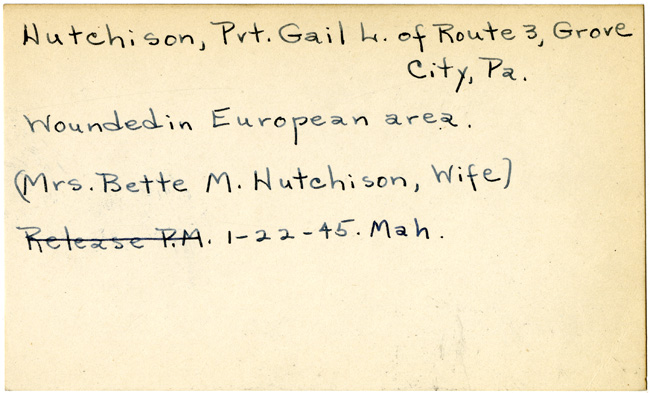 Hutchison, Pvt. Gail L. of Route 3, Grove
City, Pa.
Wounded in European area.
(Mrs. Bette M. Hutchison, Wife)
Release P.M. 1-22-45. Mah.